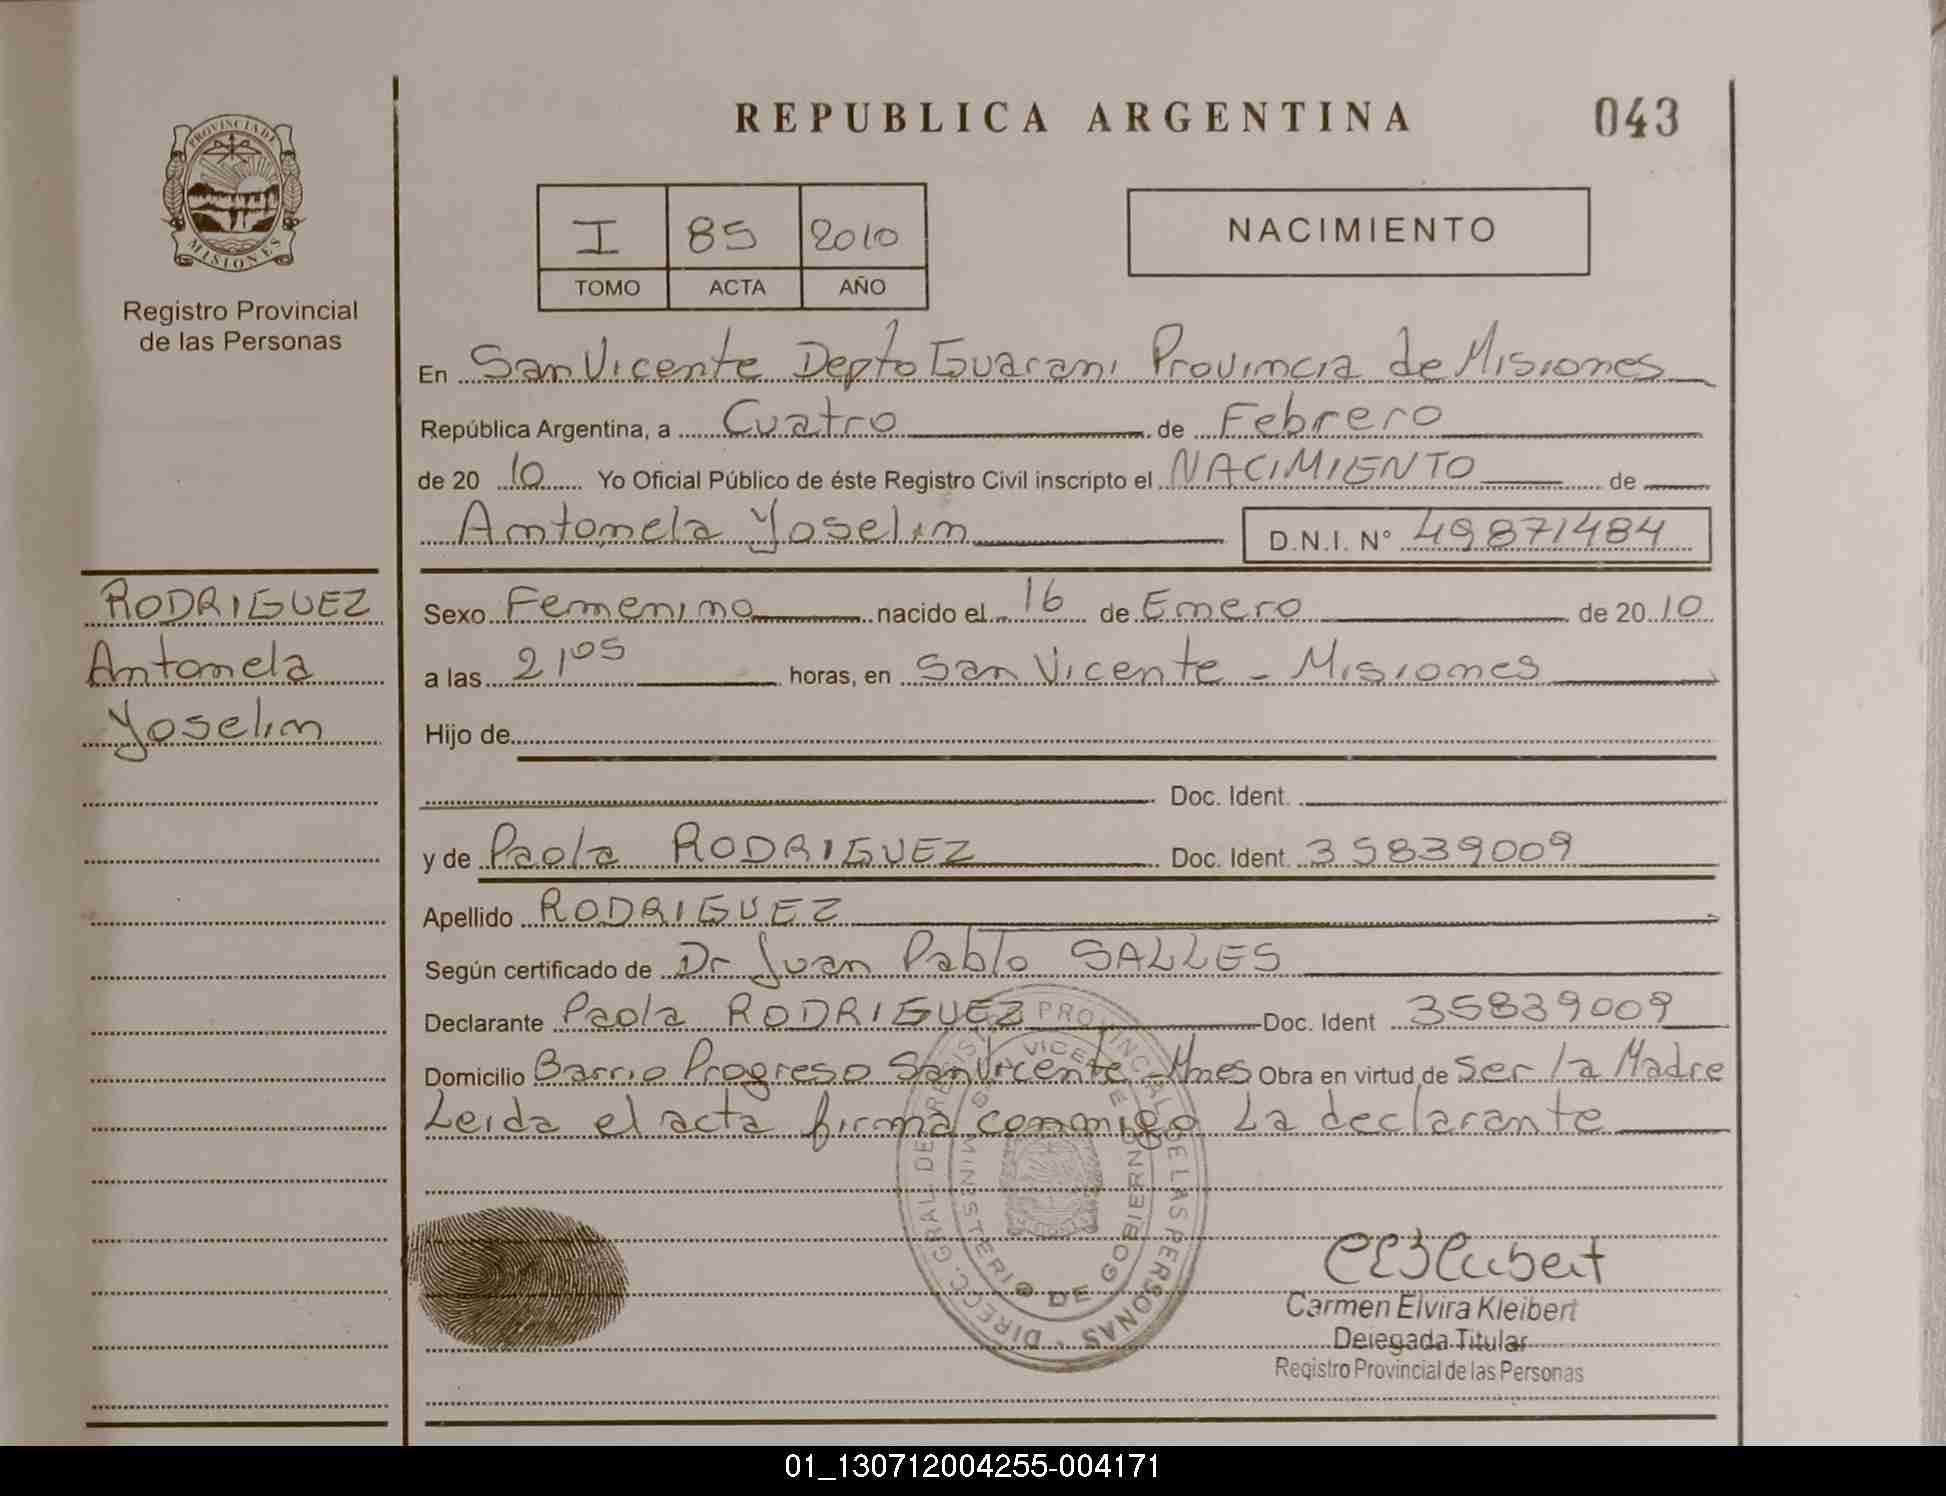 REPUBLICA ARGENTINA
043
PROVINCIA DE
MISIONES
Registro Provincial
de las Personas
I 85 2010
TOMO ACTA AÑO
NACIMIENTO
En San Vicente Depto Guarani Provincia de Misiones
República Argentina, a Cuatro de Febrero
de 20 10 Yo Oficial Público de éste Registro Civil inscripto el NACIMIENTO de
Antonela Yoselin D.N.I. N° 49871484
RODRIGUEZ
Antonela
Yoselin
Sexo Femenino nacido el 16 de Enero de 20 10
a las 21 05 horas, en San Vicente - Misiones
Hijo de
Doc. Ident.
y de Paola RODRIGUEZ Doc. Ident. 35839009
Apellido RODRIGUEZ
Según certificado de Dr Juan Pablo SALLES
Declarante Paola RODRIGUEZ Doc. Ident 35839009
Domicilio Barrio Progreso San Vicente - Mnes Obra en virtud de Ser la Madre
Leida el acta firma conmigo La declarante
DIRECC. GRAL. DE REGISTRO PROVINCIAL DE LAS PERSONAS
SAN VICENTE
MINISTERIO DE GOBIERNO
Carmen Elvira Kleibert
Delegada Titular
Registro Provincial de las Personas
01_130712004255-004171